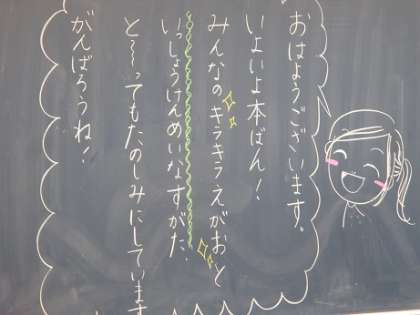 おはようございます。
いよいよ本ばん！
みんなのキラキラえがおと
いっしょうけんめいなすがた、
と〜ってもたのしみにしています
がんばろうね！